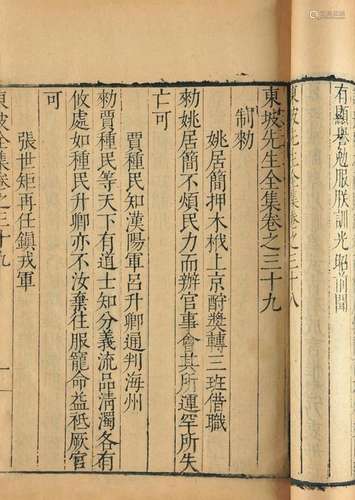 有顯譽勉服朕訓光昭前聞
東坡先生全集卷之三十八
東坡先生全集卷之三十九
制勅
姚居簡押木栰上京酧獎轉三班借職
勅姚居簡不煩民力而辦官事會其所運罕所失
亡可
賈種民知漢陽軍呂升卿通判海州
勅賈種民等天下有道士知分義流品淸濁各有
攸處如種民升卿亦不汝棄往服寵命益祗厥官
可
張世矩再任鎮戎軍
東坡全集卷之三十九 一